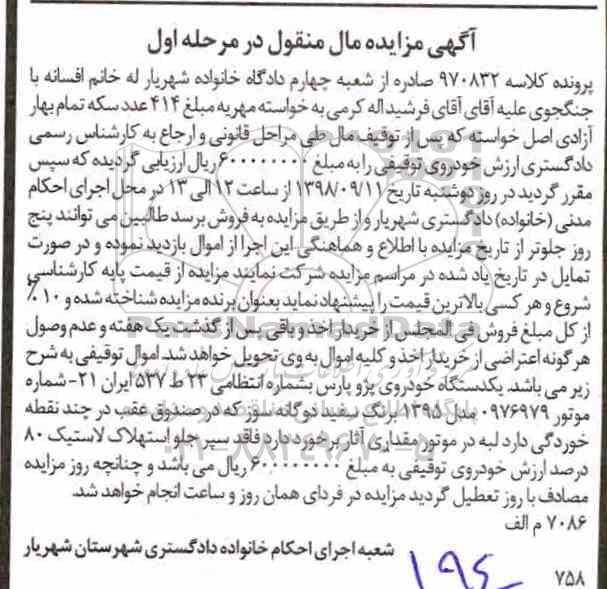 آگهی مزایده مال منقول در مرحله اول
پرونده کلاسه ۹۷۰۸۳۲ صادره از شعبه چهارم دادگاه خانواده شهریار له خانم افسانه با
جنگجوی علیه آقای آقای فرشید اله کرمی به خواسته مهریه مبلغ ۴۱۴ عدد سکه تمام بهار
آزادی اصل خواسته که پس از توقیف مال طی مراحل قانونی و ارجاع به کارشناس رسمی
دادگستری ارزش خودروی توقیفی را به مبلغ ۶۰۰۰۰۰۰۰۰ ریال ارزیابی گردیده که سپس
مقرر گردید در روز دوشنبه تاریخ ۱۳۹۸/۰۹/۱۱ از ساعت ۱۲ الی ۱۳ در محل اجرای احکام
مدنی (خانواده) دادگستری شهریار و از طریق مزایده به فروش برسد طالبین می توانند پنج
روز جلوتر از تاریخ مزایده با اطلاع و هماهنگی این اجرا از اموال بازدید نموده و در صورت
تمایل در تاریخ یاد شده در مراسم مزایده شرکت نمایند مزایده از قیمت پایه کارشناسی
شروع و هر کسی بالاترین قیمت را پیشنهاد نماید بعنوان برنده مزایده شناخته شده و ۱۰ ٪
از کل مبلغ فروش فی المجلس از خریدار اخذ و باقی پس از گذشت یک هفته و عدم وصول
هر گونه اعتراضی از خریدار اخذ و کلیه اموال به وی تحویل خواهد شد. اموال توقیفی به شرح
زیر می باشد. یکدستگاه خودروی پژو پارس بشماره انتظامی ۲۳ ط ۵۳۷ ایران ۲۱- شماره
موتور ۰۹۷۶۹۷۹ مدل ۱۳۹۵ برنگ سفید دوگانه سوز که در صندوق عقب در چند نقطه
خوردگی دارد لبه در موتور مقداری آثار برخورد دارد فاقد سپر جلو استهلاک لاستیک ۸۰
درصد ارزش خودروی توقیفی به مبلغ ۶۰۰۰۰۰۰۰۰ ریال می باشد و چنانچه روز مزایده
مصادف با روز تعطیل گردید مزایده در فردای همان روز و ساعت انجام خواهد شد.
۷۰۸۶ م الف
شعبه اجرای احکام خانواده دادگستری شهرستان شهریار
۷۵۸